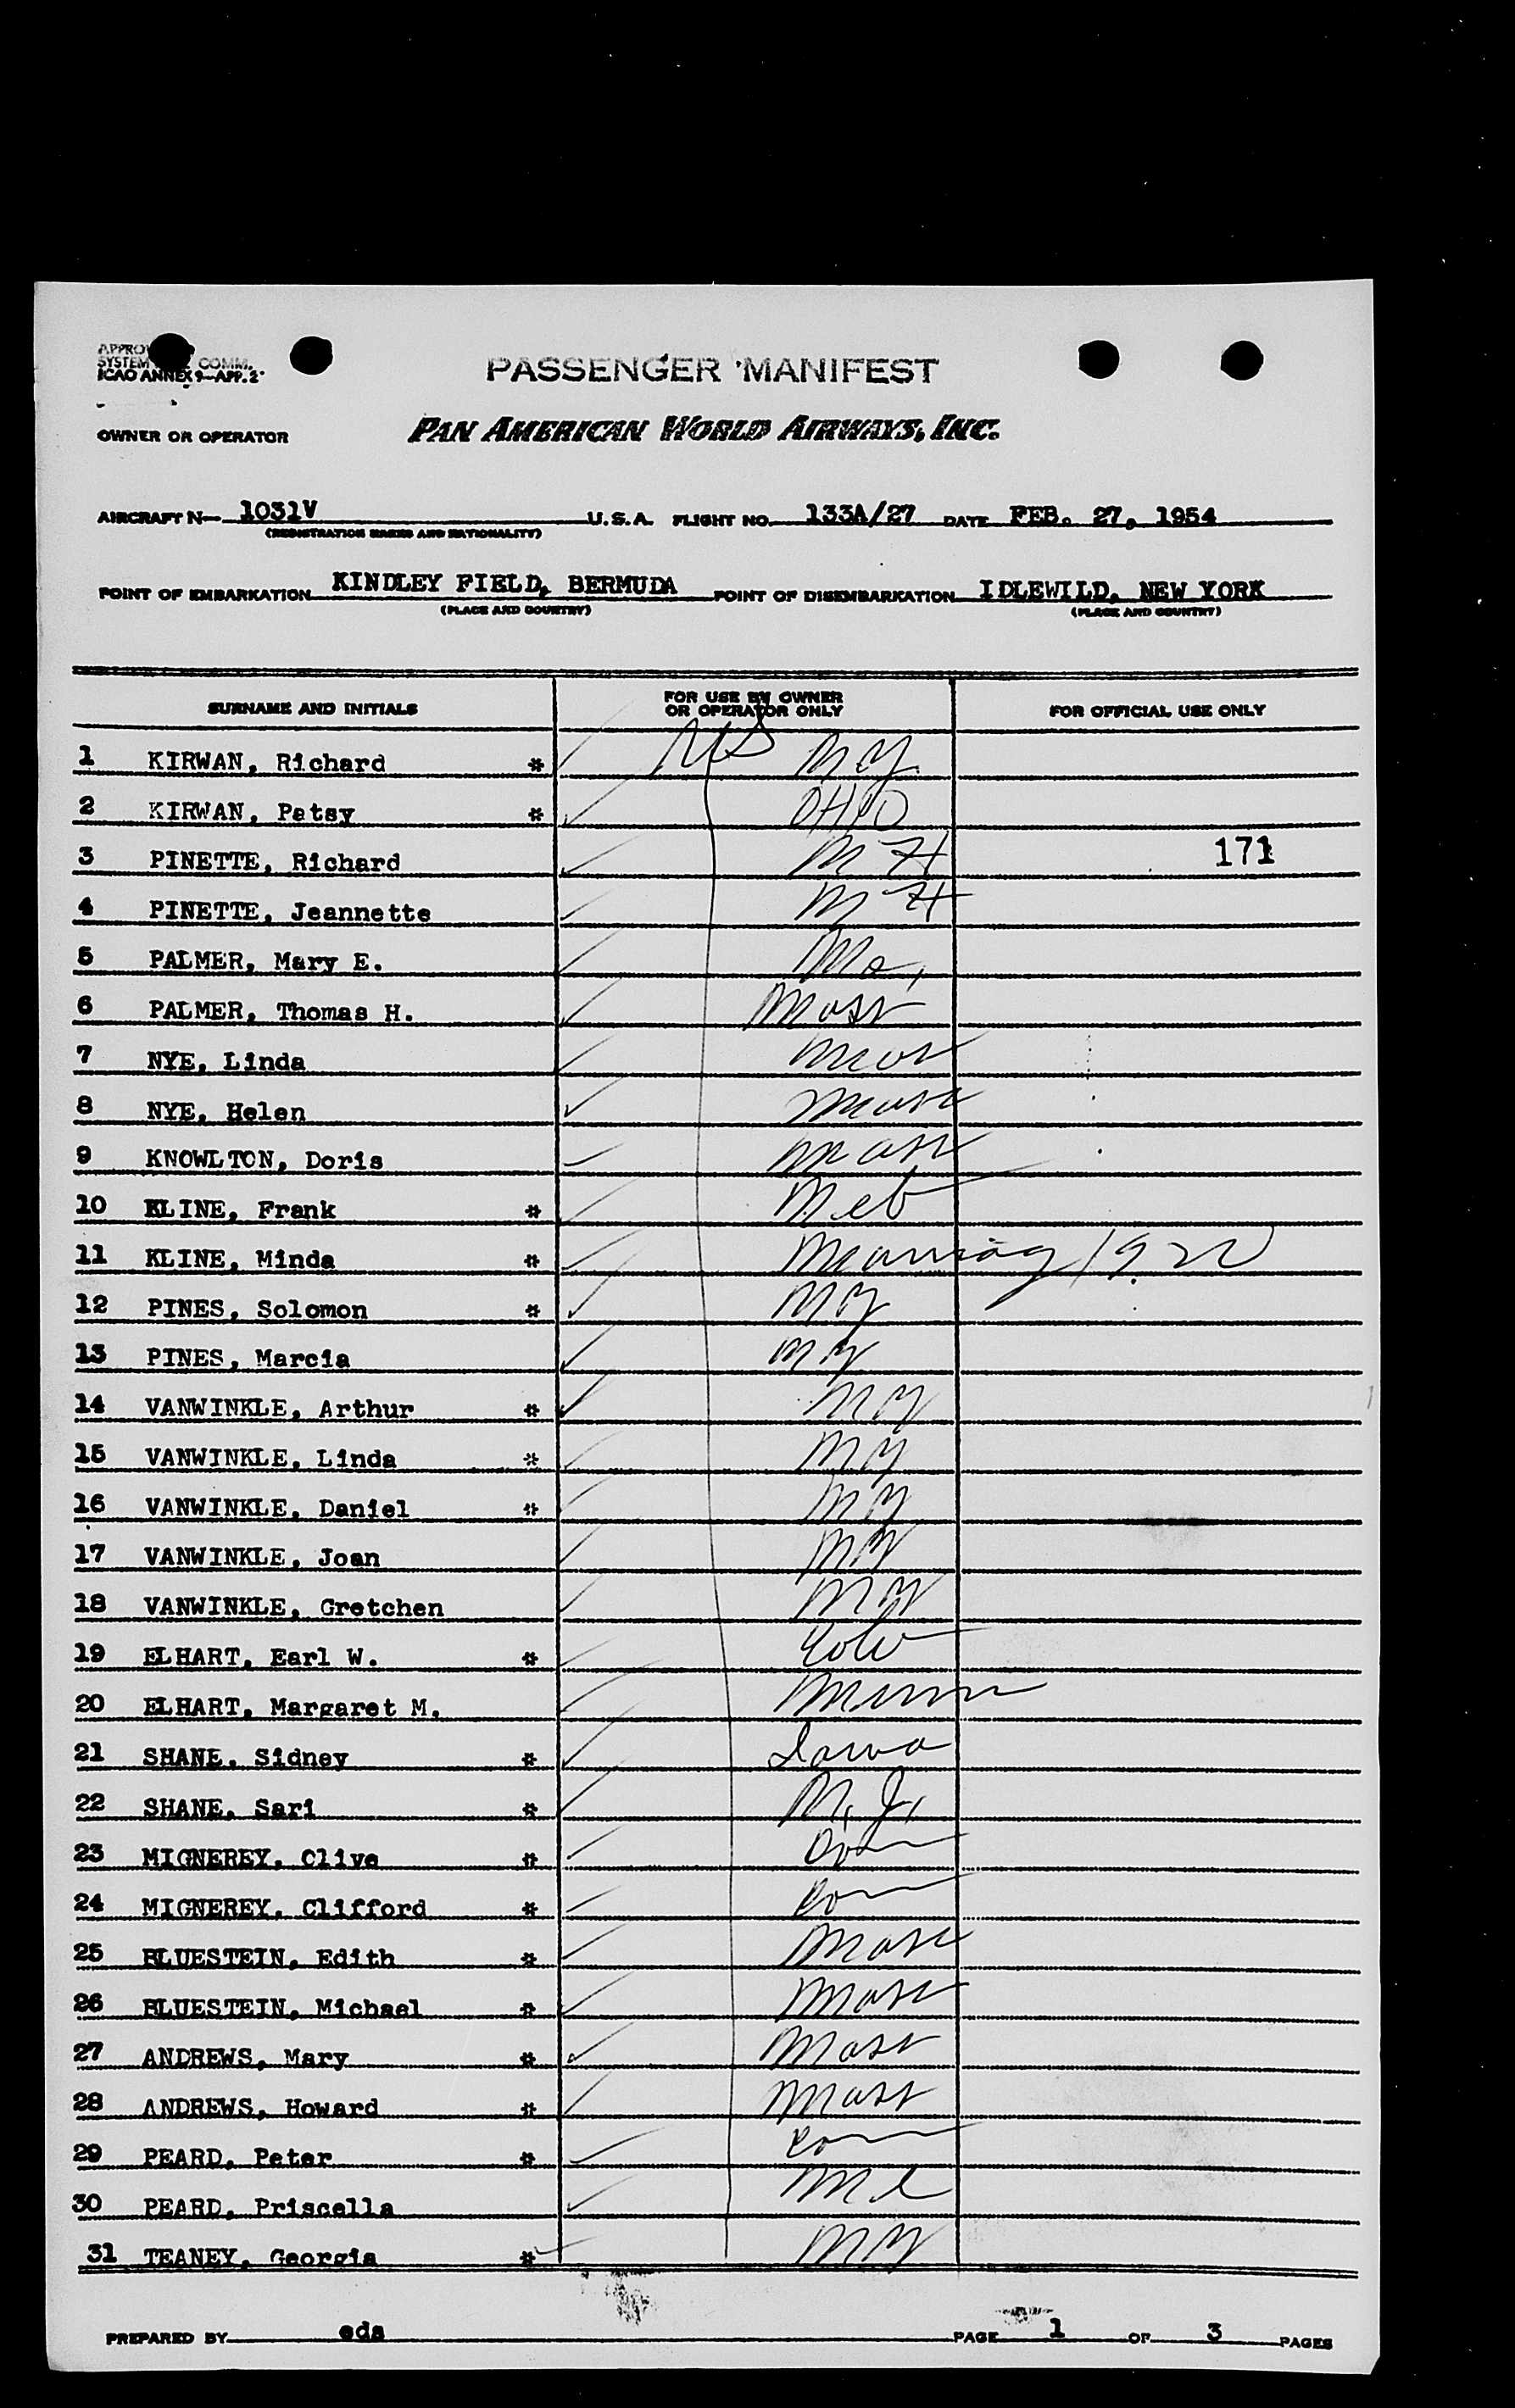 PASSENGER MANIFEST
SYSTEM COMM.
ICAO ANNEX 9—APP. 2
OWNER OR OPERATOR PAN AMERICAN WORLD AIRWAYS, INC.
AIRCRAFT N— 1031V U.S.A. FLIGHT NO. 133A/27 DATE FEB. 27, 1954
(REGISTRATION MARKS AND NATIONALITY)
POINT OF EMBARKATION KINDLEY FIELD, BERMUDA POINT OF DISEMBARKATION IDLEWILD, NEW YORK
(PLACE AND COUNTRY) (PLACE AND COUNTRY)
SURNAME AND INITIALS FOR USE BY OWNER OR OPERATOR ONLY FOR OFFICIAL USE ONLY
1 KIRWAN, Richard * US NY
2 KIRWAN, Patsy * OHIO
3 PINETTE, Richard NH 171
4 PINETTE, Jeannette NH
5 PALMER, Mary E. Mo,
6 PALMER, Thomas H. Mass
7 NYE, Linda Mass
8 NYE, Helen Mass
9 KNOWLTON, Doris Mass
10 KLINE, Frank * Neb
11 KLINE, Minda * 1922
12 PINES, Solomon * NY
13 PINES, Marcia NY
14 VANWINKLE, Arthur * NY
15 VANWINKLE, Linda * NY
16 VANWINKLE, Daniel * NY
17 VANWINKLE, Joan NY
18 VANWINKLE, Gretchen NY
19 ELHART, Earl W. * Colo
20 ELHART, Margaret M. Minn
21 SHANE, Sidney * Iowa
22 SHANE, Sari * N. J.
23 MIGNEREY, Clive *
24 MIGNEREY, Clifford * Conn
25 BLUESTEIN, Edith * Mass
26 BLUESTEIN, Michael * Mass
27 ANDREWS, Mary * Mass
28 ANDREWS, Howard * Mass
29 PEARD, Peter * Conn
30 PEARD, Priscella Me
31 TEANEY, Georgia * NY
PREPARED BY eda PAGE 1 OF 3 PAGES